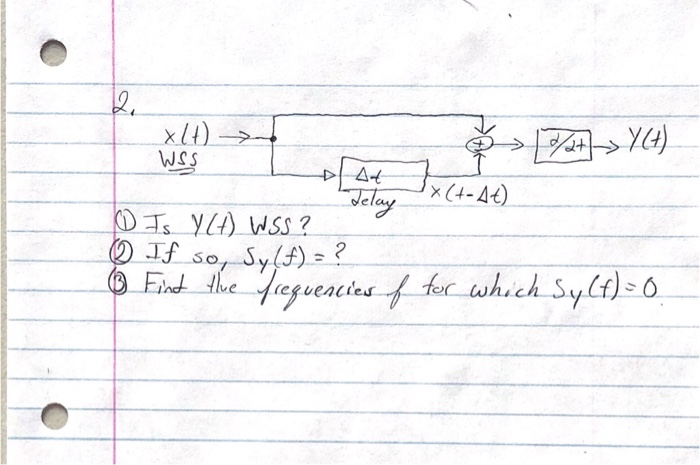 2.
x(t)
WSS
+
d/dt
Y(t)
Δt
delay
x(t-Δt)
① Is Y(t) WSS?
② If so, Sy(f) = ?
③ Find the frequencies f for which Sy(f)=0